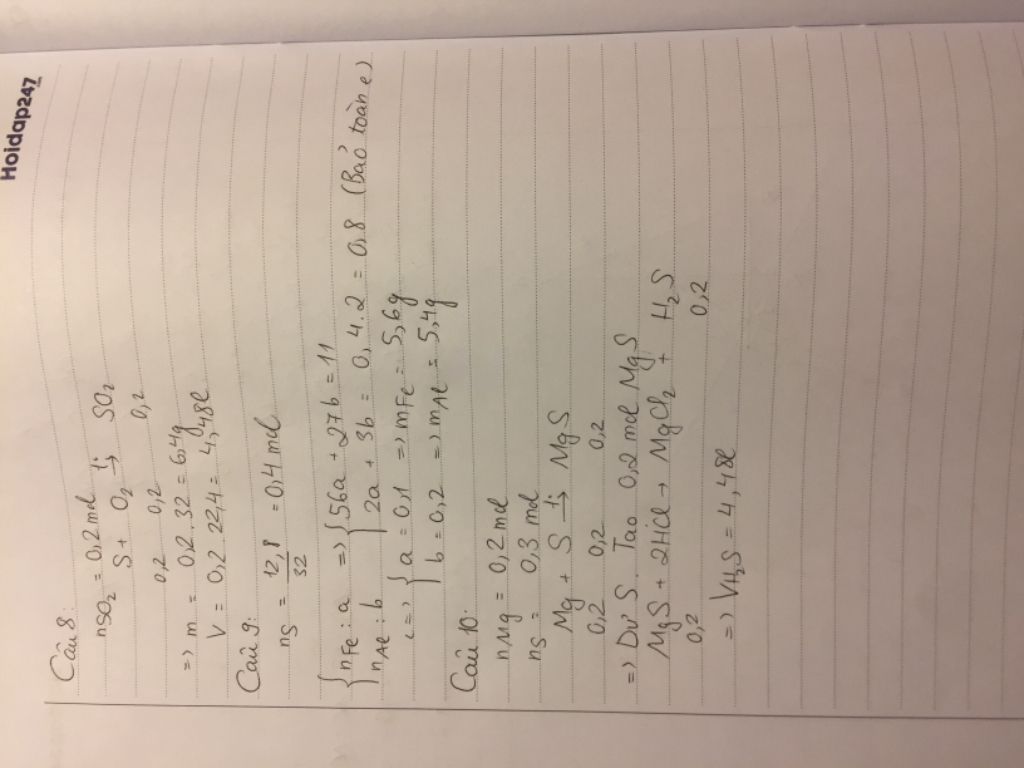 Hoidap247
Câu 8:
nSO₂ = 0,2 mol
S + O₂ t°→ SO₂
0,2 0,2 0,2
=> m = 0,2.32 = 6,4g
V = 0,2.22,4 = 4,48l
Câu 9:
nS = 12,8/32 = 0,4 mol
{nFe: a => {56a + 27b = 11
nAl: b 2a + 3b = 0,4.2 = 0,8 (Bảo toàn e)
<=> {a = 0,1 => mFe = 5,6g
b = 0,2 => mAl = 5,4g
Câu 10:
nMg = 0,2 mol
nS = 0,3 mol
Mg + S t°→ MgS
0,2 0,2 0,2
=> Dư S. Tạo 0,2 mol MgS
MgS + 2HCl → MgCl₂ + H₂S
0,2 0,2
=> VH₂S = 4,48l